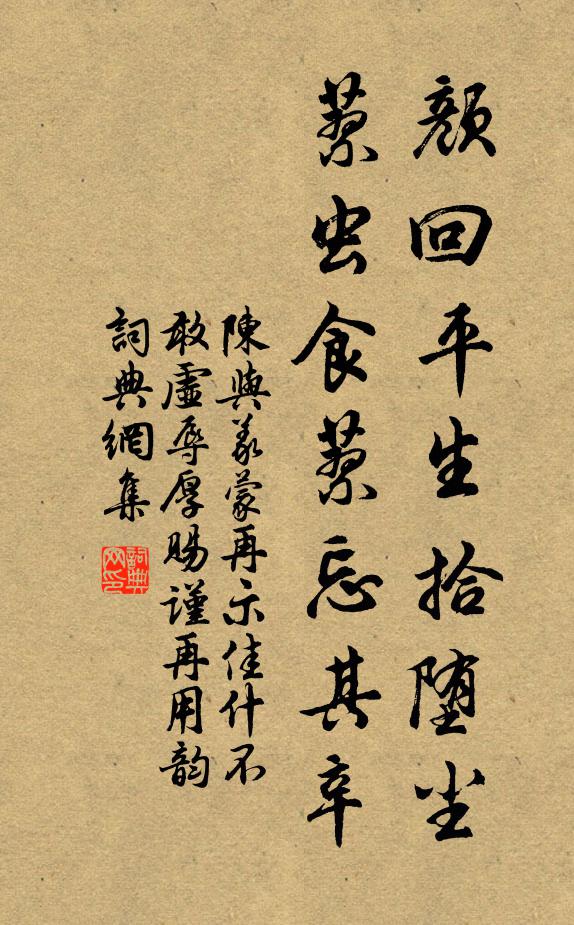 顔回平生拾堕尘
蓼虫食蓼忘其辛
陳與義蒙再示佳什不
敢虛辱厚賜謹再用韵
詞典網集
詞典
网印